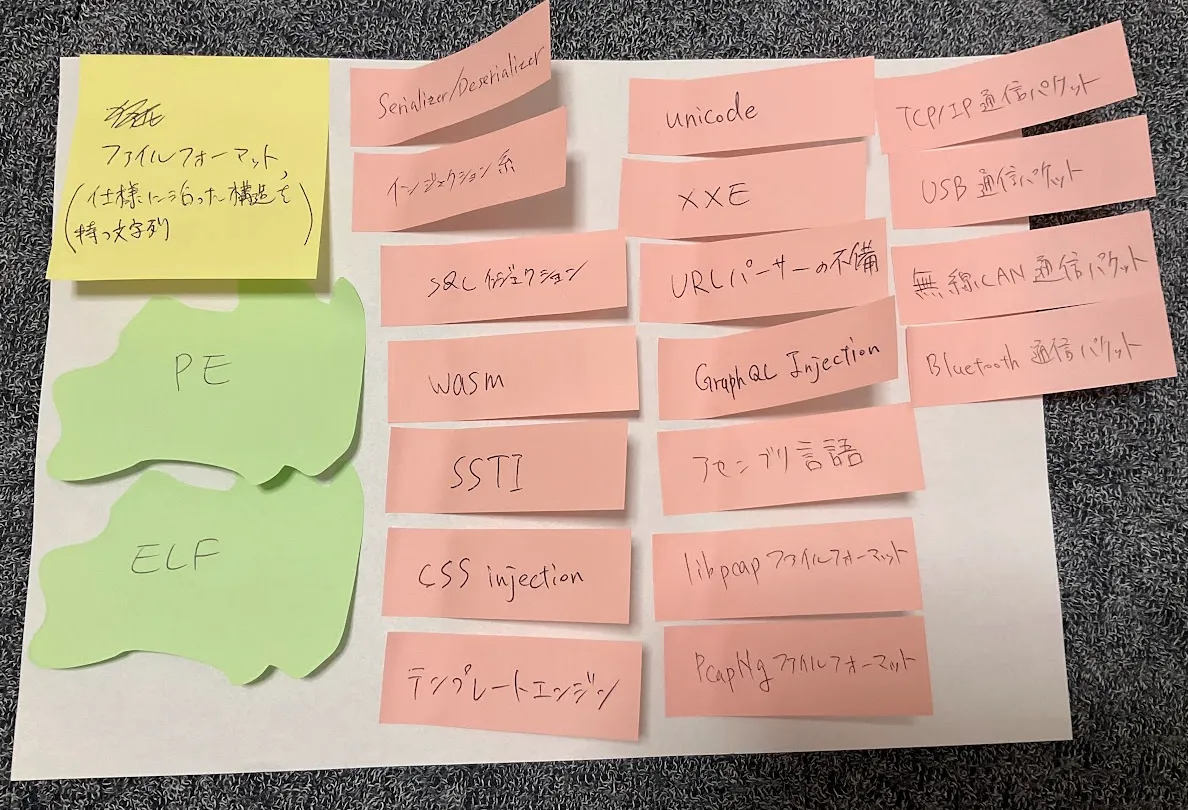 ファイルフォーマット,
(仕様に沿った構造を
持つ文字列)
PE
ELF
Serializer/Deserializer
インジェクション系
SQLインジェクション
wasm
SSTI
CSS injection
テンプレートエンジン
unicode
XXE
URLパーサーの不備
GraphQL Injection
アセンブリ言語
libpcap ファイルフォーマット
PcapNg ファイルフォーマット
TCP/IP 通信パケット
USB 通信パケット
無線CAN 通信パケット
Bluetooth 通信パケット